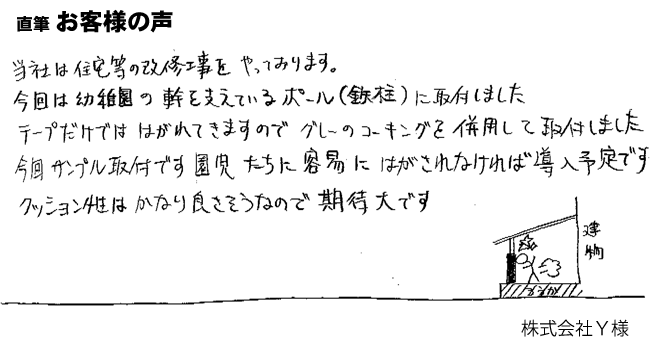 直筆 お客様の声
当社は住宅等の改修工事を やっております。
今回は幼稚園の 幹を支えている ポール(鉄柱)に取付しました
テープだけでは はがれてきますので グレーのコーキングを 併用して取付しました
今回サンプル取付です 園児たちに 容易に はがされなければ 導入予定です
クッション性は かなり良さそうなので 期待大です
建物
株式会社Y様